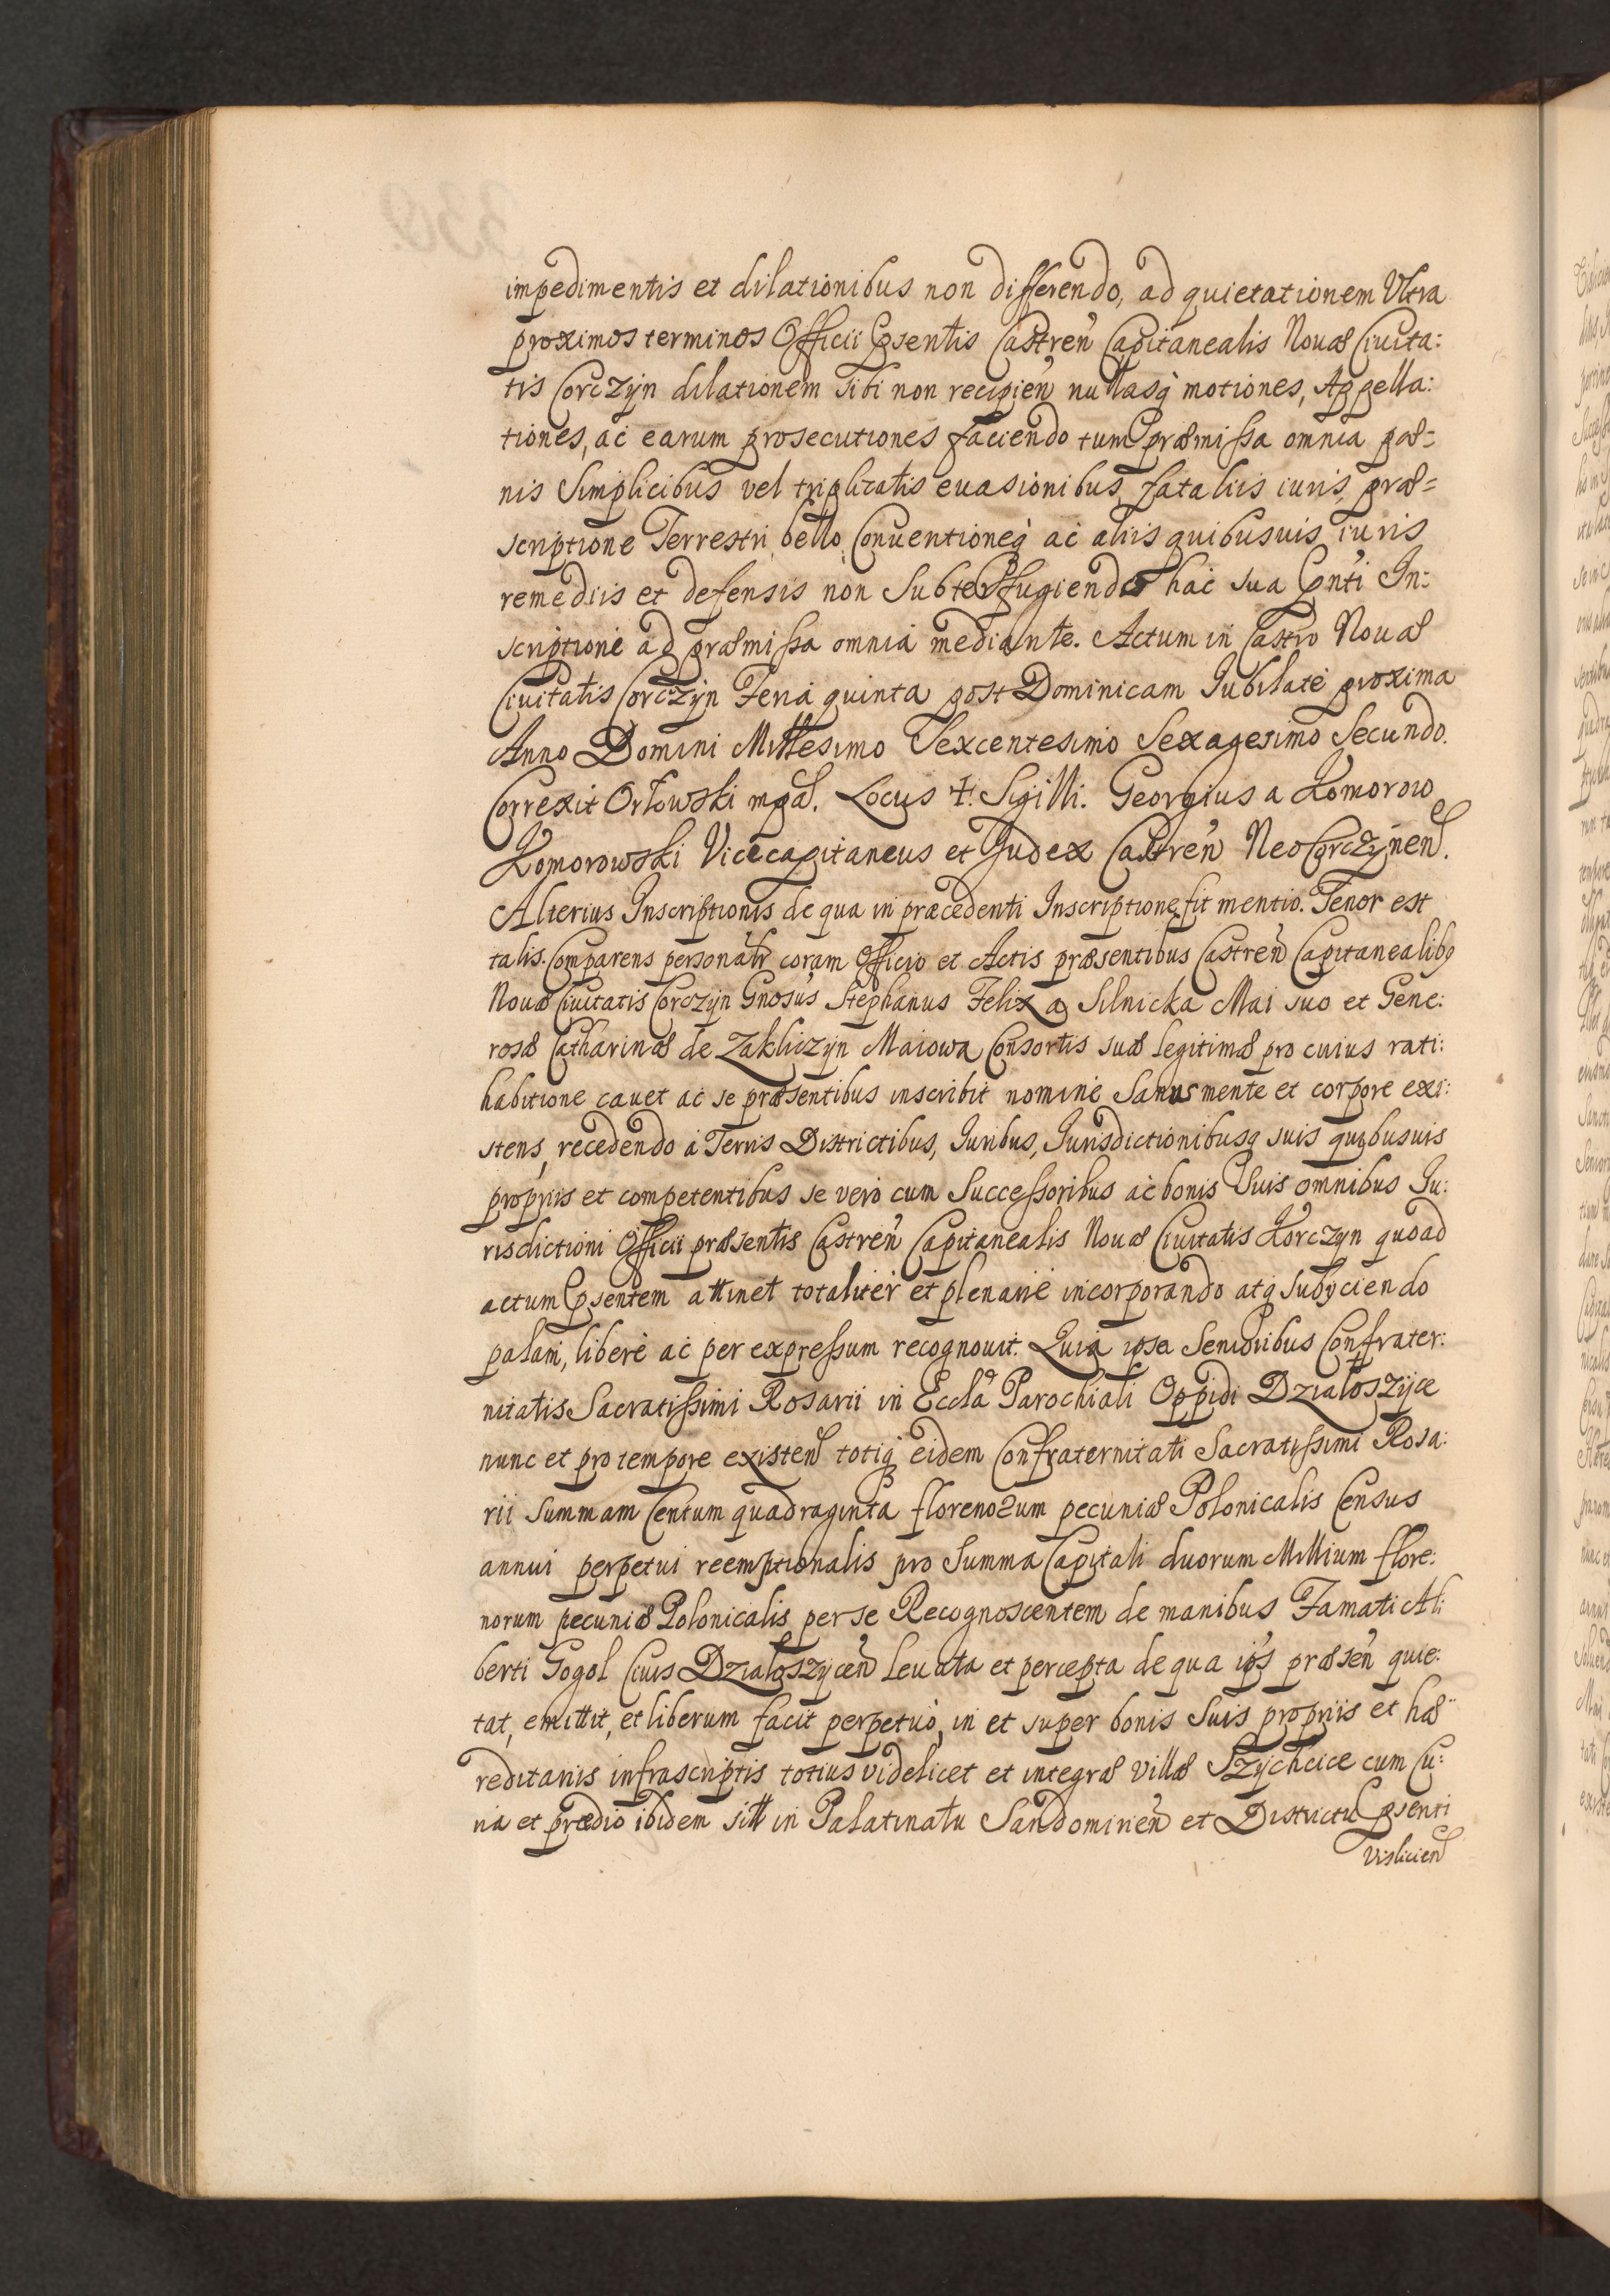 impedimentis et dilationibus non differendo, ad quietationem Ultra
proximos terminos Officii Psentis Castren Capitanealis Novæ Ciuita:
tis Corczyn dilationem sibi non recipien nullasq motiones, Appella:
tiones, ac earum prosecutiones faciendo tum præmissa omnia pæ=
nis Simplicibus vel triplicatis euasionibus fataliis iuris, præ=
scriptione Terrestri, bello, Conuentioneq ac aliis quibusuis iuris
remediis et defensis non Subterffugiendo hac sua Pnti In:
scriptione ad præmissa omnia mediante. Actum in Castro Nouæ
Ciuitatis Corczyn Feria quinta post Dominicam Jubilate proxima
Anno Domini Millesimo Sexcentesimo Sexagesimo Secundo.
Correxit Orłowski mpa. Locus †. Sigilli. Georgius a Komorow
Komorowski Vicecapitaneus et Judex Castren NeoCorczynen.
Alterius Inscriptionis de qua in præcedenti Inscriptione fit mentio. Tenor est
talis. Comparens personalr coram Officio et Actis præsentibus Castren Capitanealibq
Nouæ Ciuitatis Corczyn Gnosus Stephanus Felix a Silnicka Mai suo et Gene:
rosæ Catharinæ de Zakliczyn Maiowa Consortis suæ legitimæ pro cuius rati:
habitione cauet ac se præsentibus inscribit nomine Sanus mente et corpore exi:
stens, recedendo a Terris Districtibus, Juribus, Jurisdictionibusq suis quibusuis
propriis et competentibus se vero cum Successoribus ac bonis Suis omnibus Ju:
risdictioni Officii præsentis Castren Capitanealis Nouæ Ciuitatis Korczyn quoad
actum Psentem attinet totaliter et plenarie incorporando atq Subyciendo
palam, libere ac per expressum recognouit. Quia ipse Senioribus Confrater:
nitatis Sacratissimi Rosarii in Eccla Parochiali Oppidi Działoszyce
nunc et pro tempore existen totiq eidem Confraternitati Sacratissimi Rosa:
rii Summam Centum quadraginta florenorum pecuniæ Polonicalis Census
annui perpetui reemptionalis pro Summa Capitali duorum Millium flore:
norum pecuniæ Polonicalis per se Recognoscentem de manibus Famati Al:
berti Gogol Ciuis Działoszycen leuata et percepta de qua ips præsen quie:
tat, emittit, et liberum facit perpetuo, in et super bonis Suis propriis et hæ
reditariis infrascriptis totius videlicet et integræ villæ Szychcice cum Cu:
ria et prædio ibidem sitt in Palatinatu Sandomirien et Districtu Psenti
Vislicien